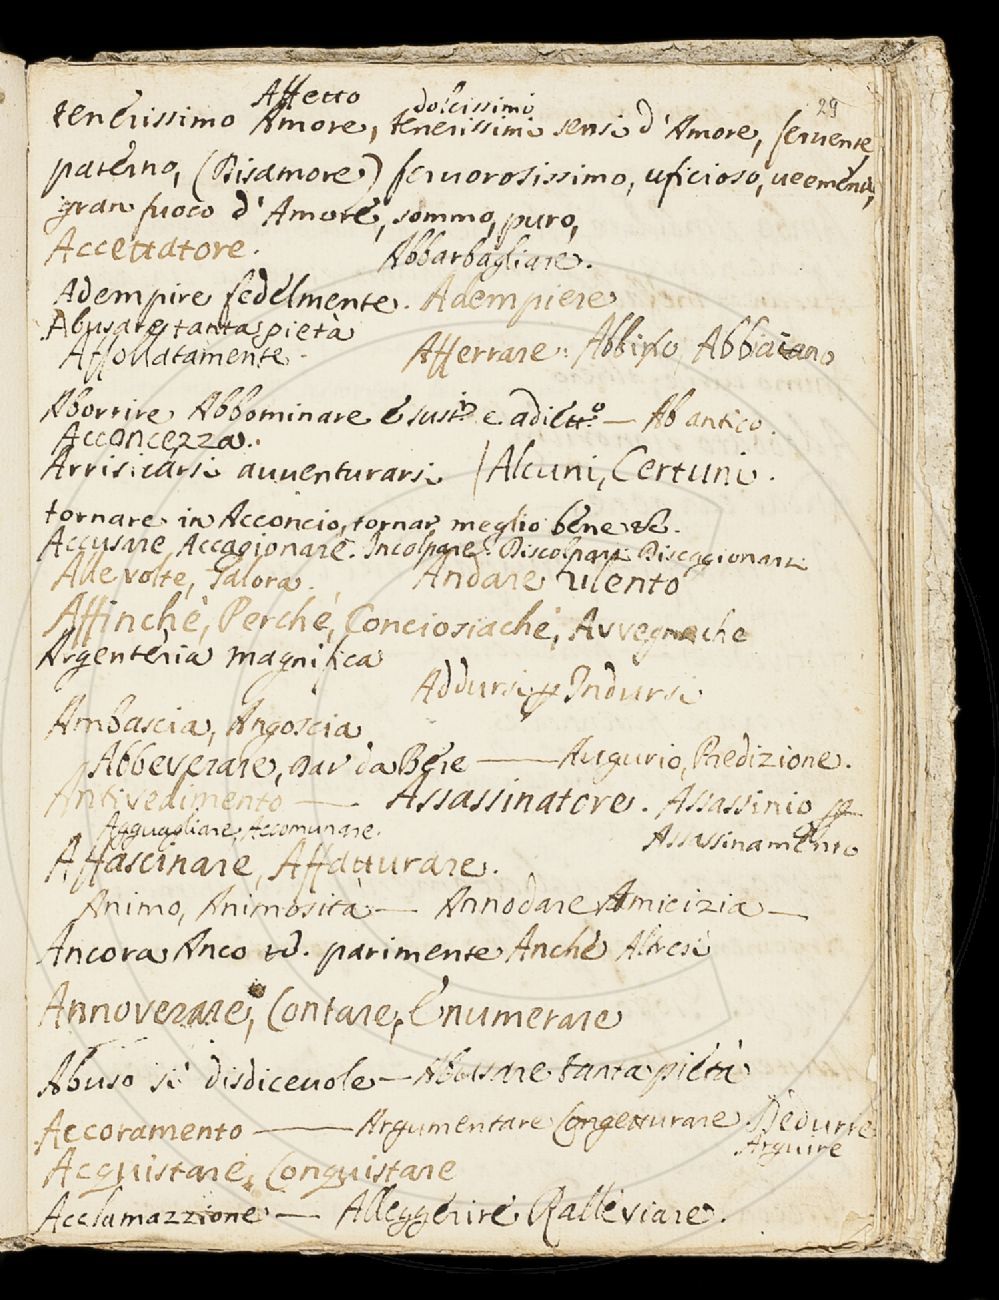 29
Affetto dolcissimi
tenerissimo Amore, tenerissimi sensi d'Amore, feruente,
paterno, (Disamore) feruorosissimo, uficioso, ueemente,
gran fuoco d'Amore, sommo, puro,
Accettatore. Abbarbagliare.
Adempire fedelmente. Adempiere
Abusare tanta pietà
Affollatamente. Afferrare. Abbisso Abbaiano
Aborrire Abbominare è sust.o e adiett.o — Ab antico.
Acconcezza.
Arrisicarsi auuenturarsi / Alcuni, Certuni.
tornare in Acconcio, tornar meglio bene
Accusare, Accagionare. Incolpare. Discolpare. Discagionare
Alle volte, Talora. Andare
Affinché, Perché, Conciosiaché, Avvegnache
Argenteria magnifica
Addursi Indursi
Ambascia, Angoscia
Abbeverare, Dar da Bere — Augurio, Predizione.
Antivedimento — Assassinatore. Assassinio
Agguagliare, Accomunare. Assassinamento
Affascinare, Affatturare.
Animo, Animosità — Annodare Amicizia —
Ancora Anco parimente Anche Altresì
Annoverare, Contare, Enumerare
Abuso si disdiceuole — Abusare tanta pietà
Accoramento — Argumentare Congetturare Dedurre
Arguire
Acquistare, Conquistare
Acclamazzione — Alleggerire Ralleviare.